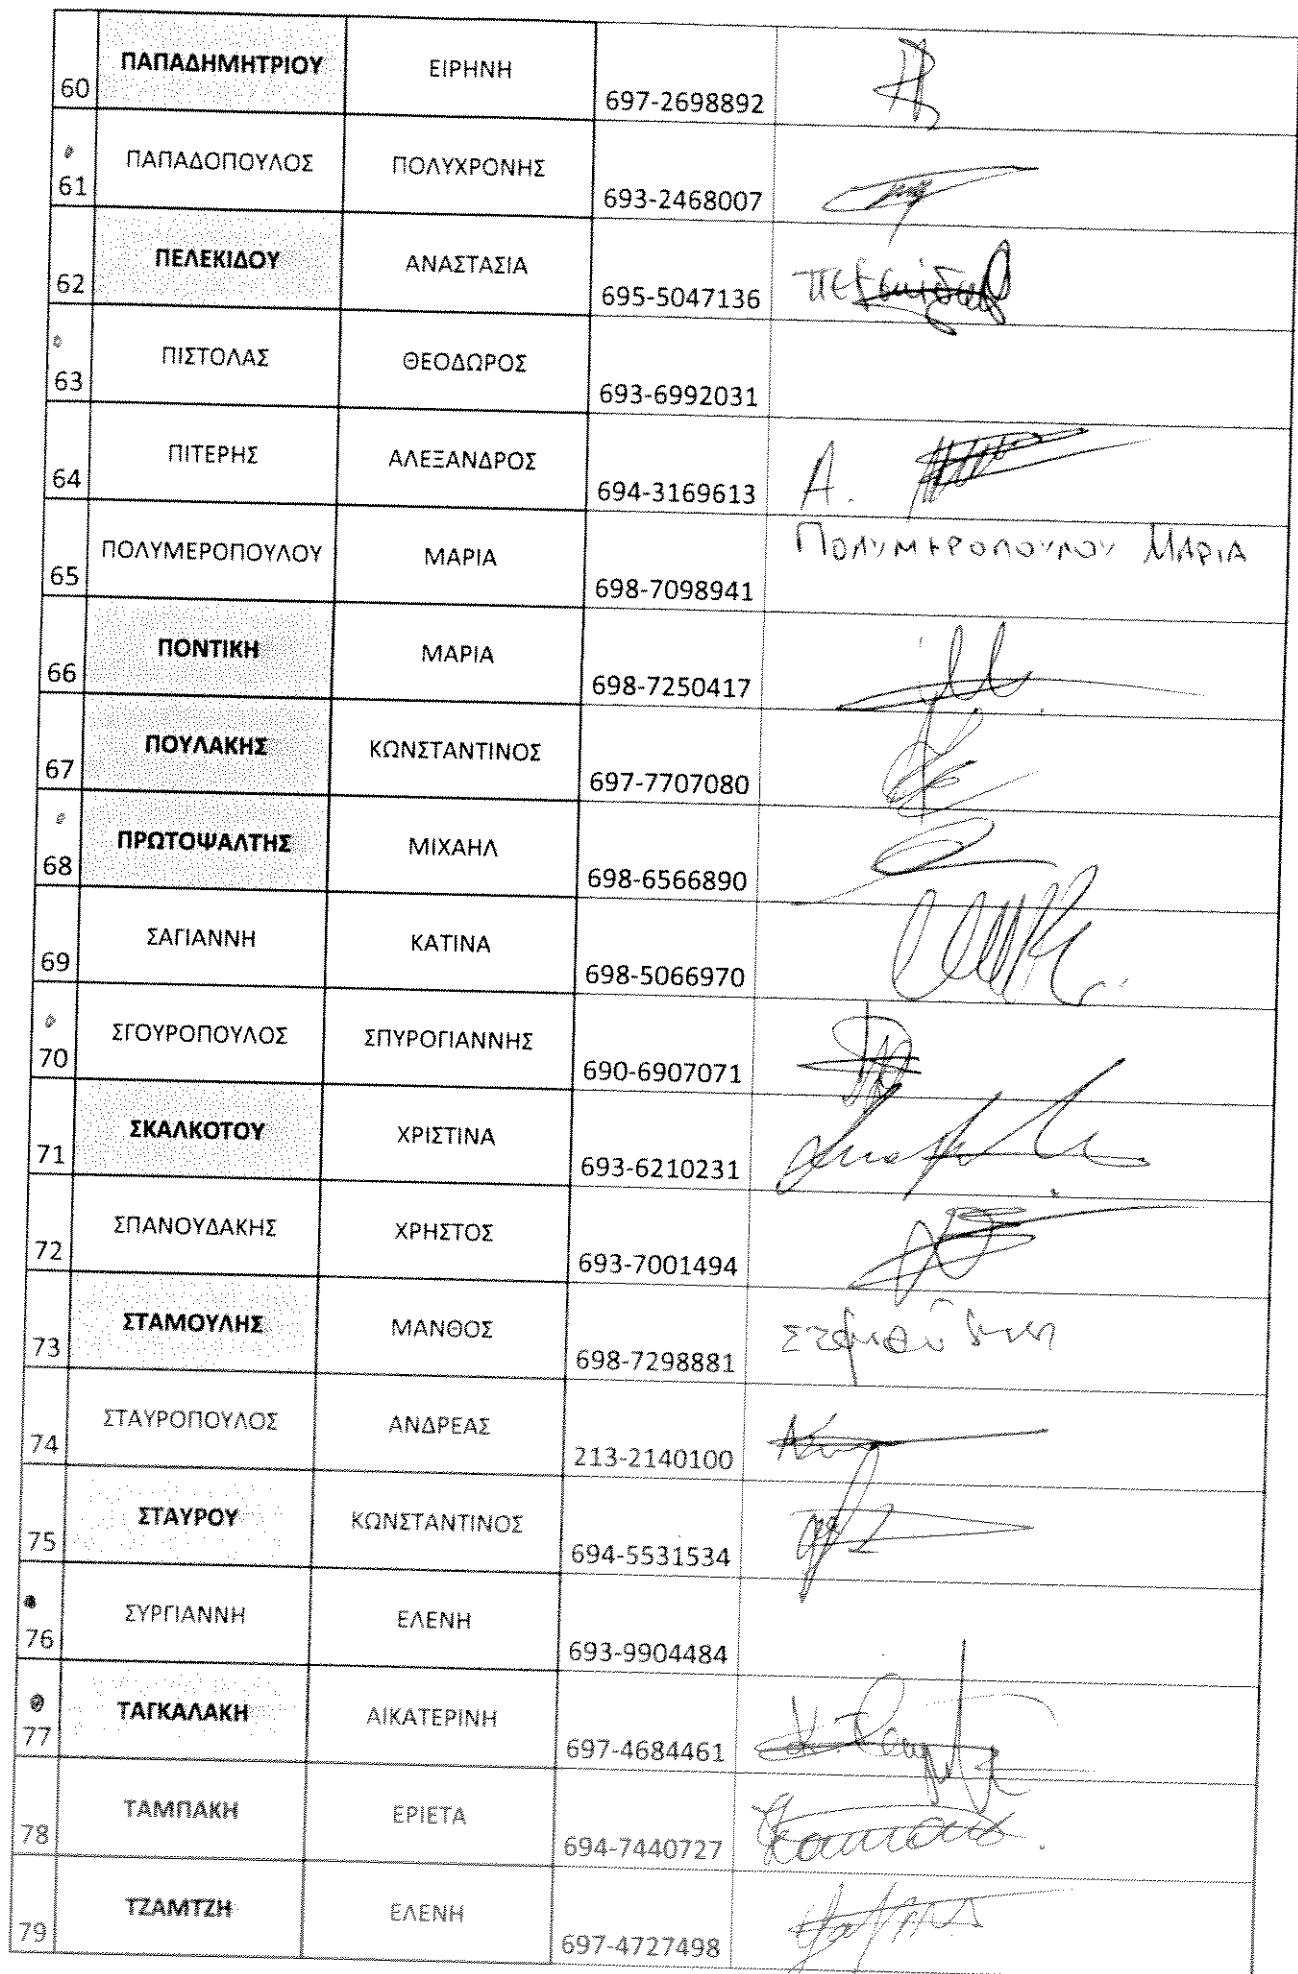 60 ΠΑΠΑΔΗΜΗΤΡΙΟΥ ΕΙΡΗΝΗ 697-2698892
61 ΠΑΠΑΔΟΠΟΥΛΟΣ ΠΟΛΥΧΡΟΝΗΣ 693-2468007
62 ΠΕΛΕΚΙΔΟΥ ΑΝΑΣΤΑΣΙΑ 695-5047136
63 ΠΙΣΤΟΛΑΣ ΘΕΟΔΩΡΟΣ 693-6992031
64 ΠΙΤΕΡΗΣ ΑΛΕΞΑΝΔΡΟΣ 694-3169613 Α.
65 ΠΟΛΥΜΕΡΟΠΟΥΛΟΥ ΜΑΡΙΑ 698-7098941 ΠΟΛΥΜΕΡΟΠΟΥΛΟΥ ΜΑΡΙΑ
66 ΠΟΝΤΙΚΗ ΜΑΡΙΑ 698-7250417
67 ΠΟΥΛΑΚΗΣ ΚΩΝΣΤΑΝΤΙΝΟΣ 697-7707080
68 ΠΡΩΤΟΨΑΛΤΗΣ ΜΙΧΑΗΛ 698-6566890
69 ΣΑΓΙΑΝΝΗ ΚΑΤΙΝΑ 698-5066970
70 ΣΓΟΥΡΟΠΟΥΛΟΣ ΣΠΥΡΟΓΙΑΝΝΗΣ 690-6907071
71 ΣΚΑΛΚΟΤΟΥ ΧΡΙΣΤΙΝΑ 693-6210231
72 ΣΠΑΝΟΥΔΑΚΗΣ ΧΡΗΣΤΟΣ 693-7001494
73 ΣΤΑΜΟΥΛΗΣ ΜΑΝΘΟΣ 698-7298881
74 ΣΤΑΥΡΟΠΟΥΛΟΣ ΑΝΔΡΕΑΣ 213-2140100
75 ΣΤΑΥΡΟΥ ΚΩΝΣΤΑΝΤΙΝΟΣ 694-5531534
76 ΣΥΡΓΙΑΝΝΗ ΕΛΕΝΗ 693-9904484
77 ΤΑΓΚΑΛΑΚΗ ΑΙΚΑΤΕΡΙΝΗ 697-4684461
78 ΤΑΜΠΑΚΗ ΕΡΙΕΤΑ 694-7440727
79 ΤΖΑΜΤΖΗ ΕΛΕΝΗ 697-4727498